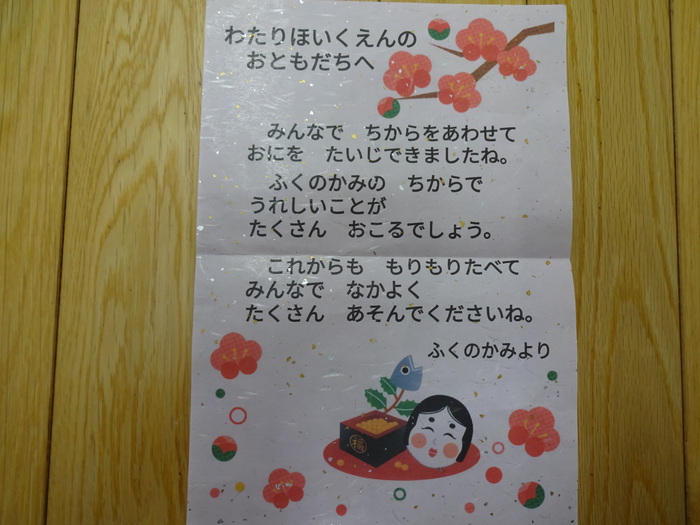 わたりほいくえんの
おともだちへ
みんなで　ちからをあわせて
おにを　たいじできましたね。
ふくのかみの　ちからで
うれしいことが
たくさん　おこるでしょう。
これからも　もりもりたべて
みんなで　なかよく
たくさん　あそんでくださいね。
ふくのかみより
福